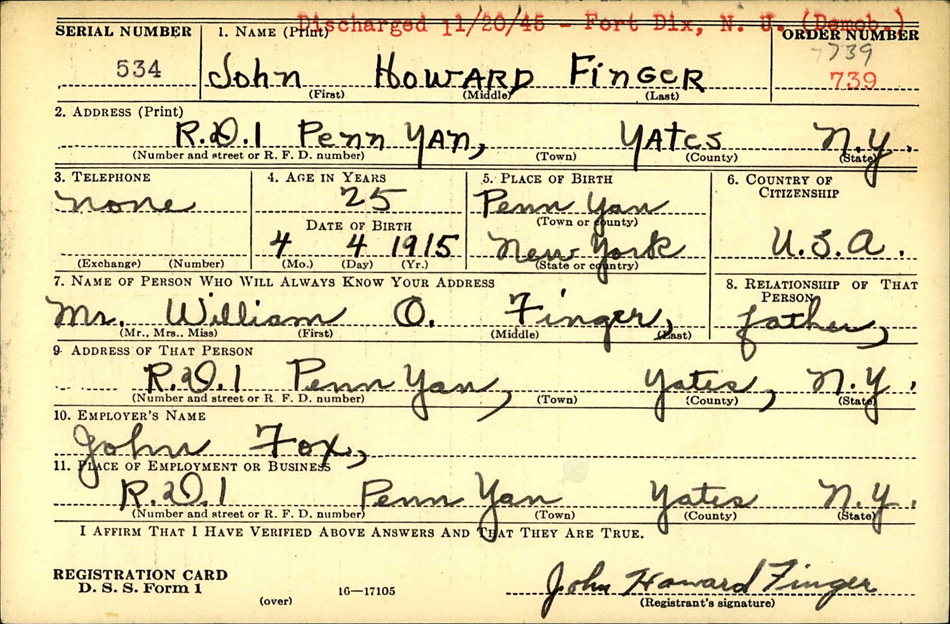 Discharged 11/20/45 - Fort Dix, N. J. (Demob.)
SERIAL NUMBER 1. NAME (Print) ORDER NUMBER
739
534 John HOWARD FINGER 739
(First) (Middle) (Last)
2. ADDRESS (Print)
R.D.1 Penn YAN, YATES N.Y.
(Number and street or R. F. D. number) (Town) (County) (State)
3. TELEPHONE 4. AGE IN YEARS 5. PLACE OF BIRTH 6. COUNTRY OF CITIZENSHIP
none 25 Penn Yan
(Town or county)
DATE OF BIRTH
4 4 1915 New York U.S.A.
(Exchange) (Number) (Mo.) (Day) (Yr.) (State or country)
7. NAME OF PERSON WHO WILL ALWAYS KNOW YOUR ADDRESS 8. RELATIONSHIP OF THAT PERSON
Mr. William O. Finger, father,
(Mr., Mrs., Miss) (First) (Middle) (Last)
9. ADDRESS OF THAT PERSON
R.D.1 Penn Yan, Yates, N.Y.
(Number and street or R. F. D. number) (Town) (County) (State)
10. EMPLOYER'S NAME
John Fox,
11. PLACE OF EMPLOYMENT OR BUSINESS
R.D.1 Penn Yan Yates N.Y.
(Number and street or R. F. D. number) (Town) (County) (State)
I AFFIRM THAT I HAVE VERIFIED ABOVE ANSWERS AND THAT THEY ARE TRUE.
REGISTRATION CARD
D. S. S. Form 1
(over) 16—17105 John Howard Finger
(Registrant's signature)